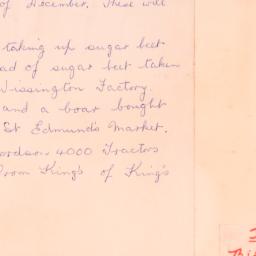 of December. These will
taking up sugar beet
ad of sugar beet taken
Wissington Factory.
and a boar bought
St Edmund's Market.
ordson 4000 Tractors
from King's of King's